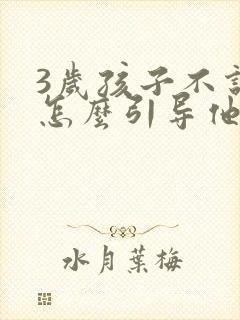 3歲孩子不
怎麼引导他
水月葉梅